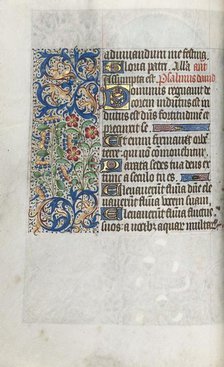 adiuvandum me festina
Gloria patri. Alla ant
Assumpta est. Psalmus david
Dominus regnavit de
corem indutus est in
dutus est dns fortitudinē et
precinxit se
Et enim firmavit orbē
terre qui nō comovebitur
Parata sedes tua deus ex
tunc a seculo tu es
Elevaverūt flūa dūe ele
vaverūt flūa vocem suam
Elevaverūt flūa fluctus
suos a vocib; aquar̄ multar̄